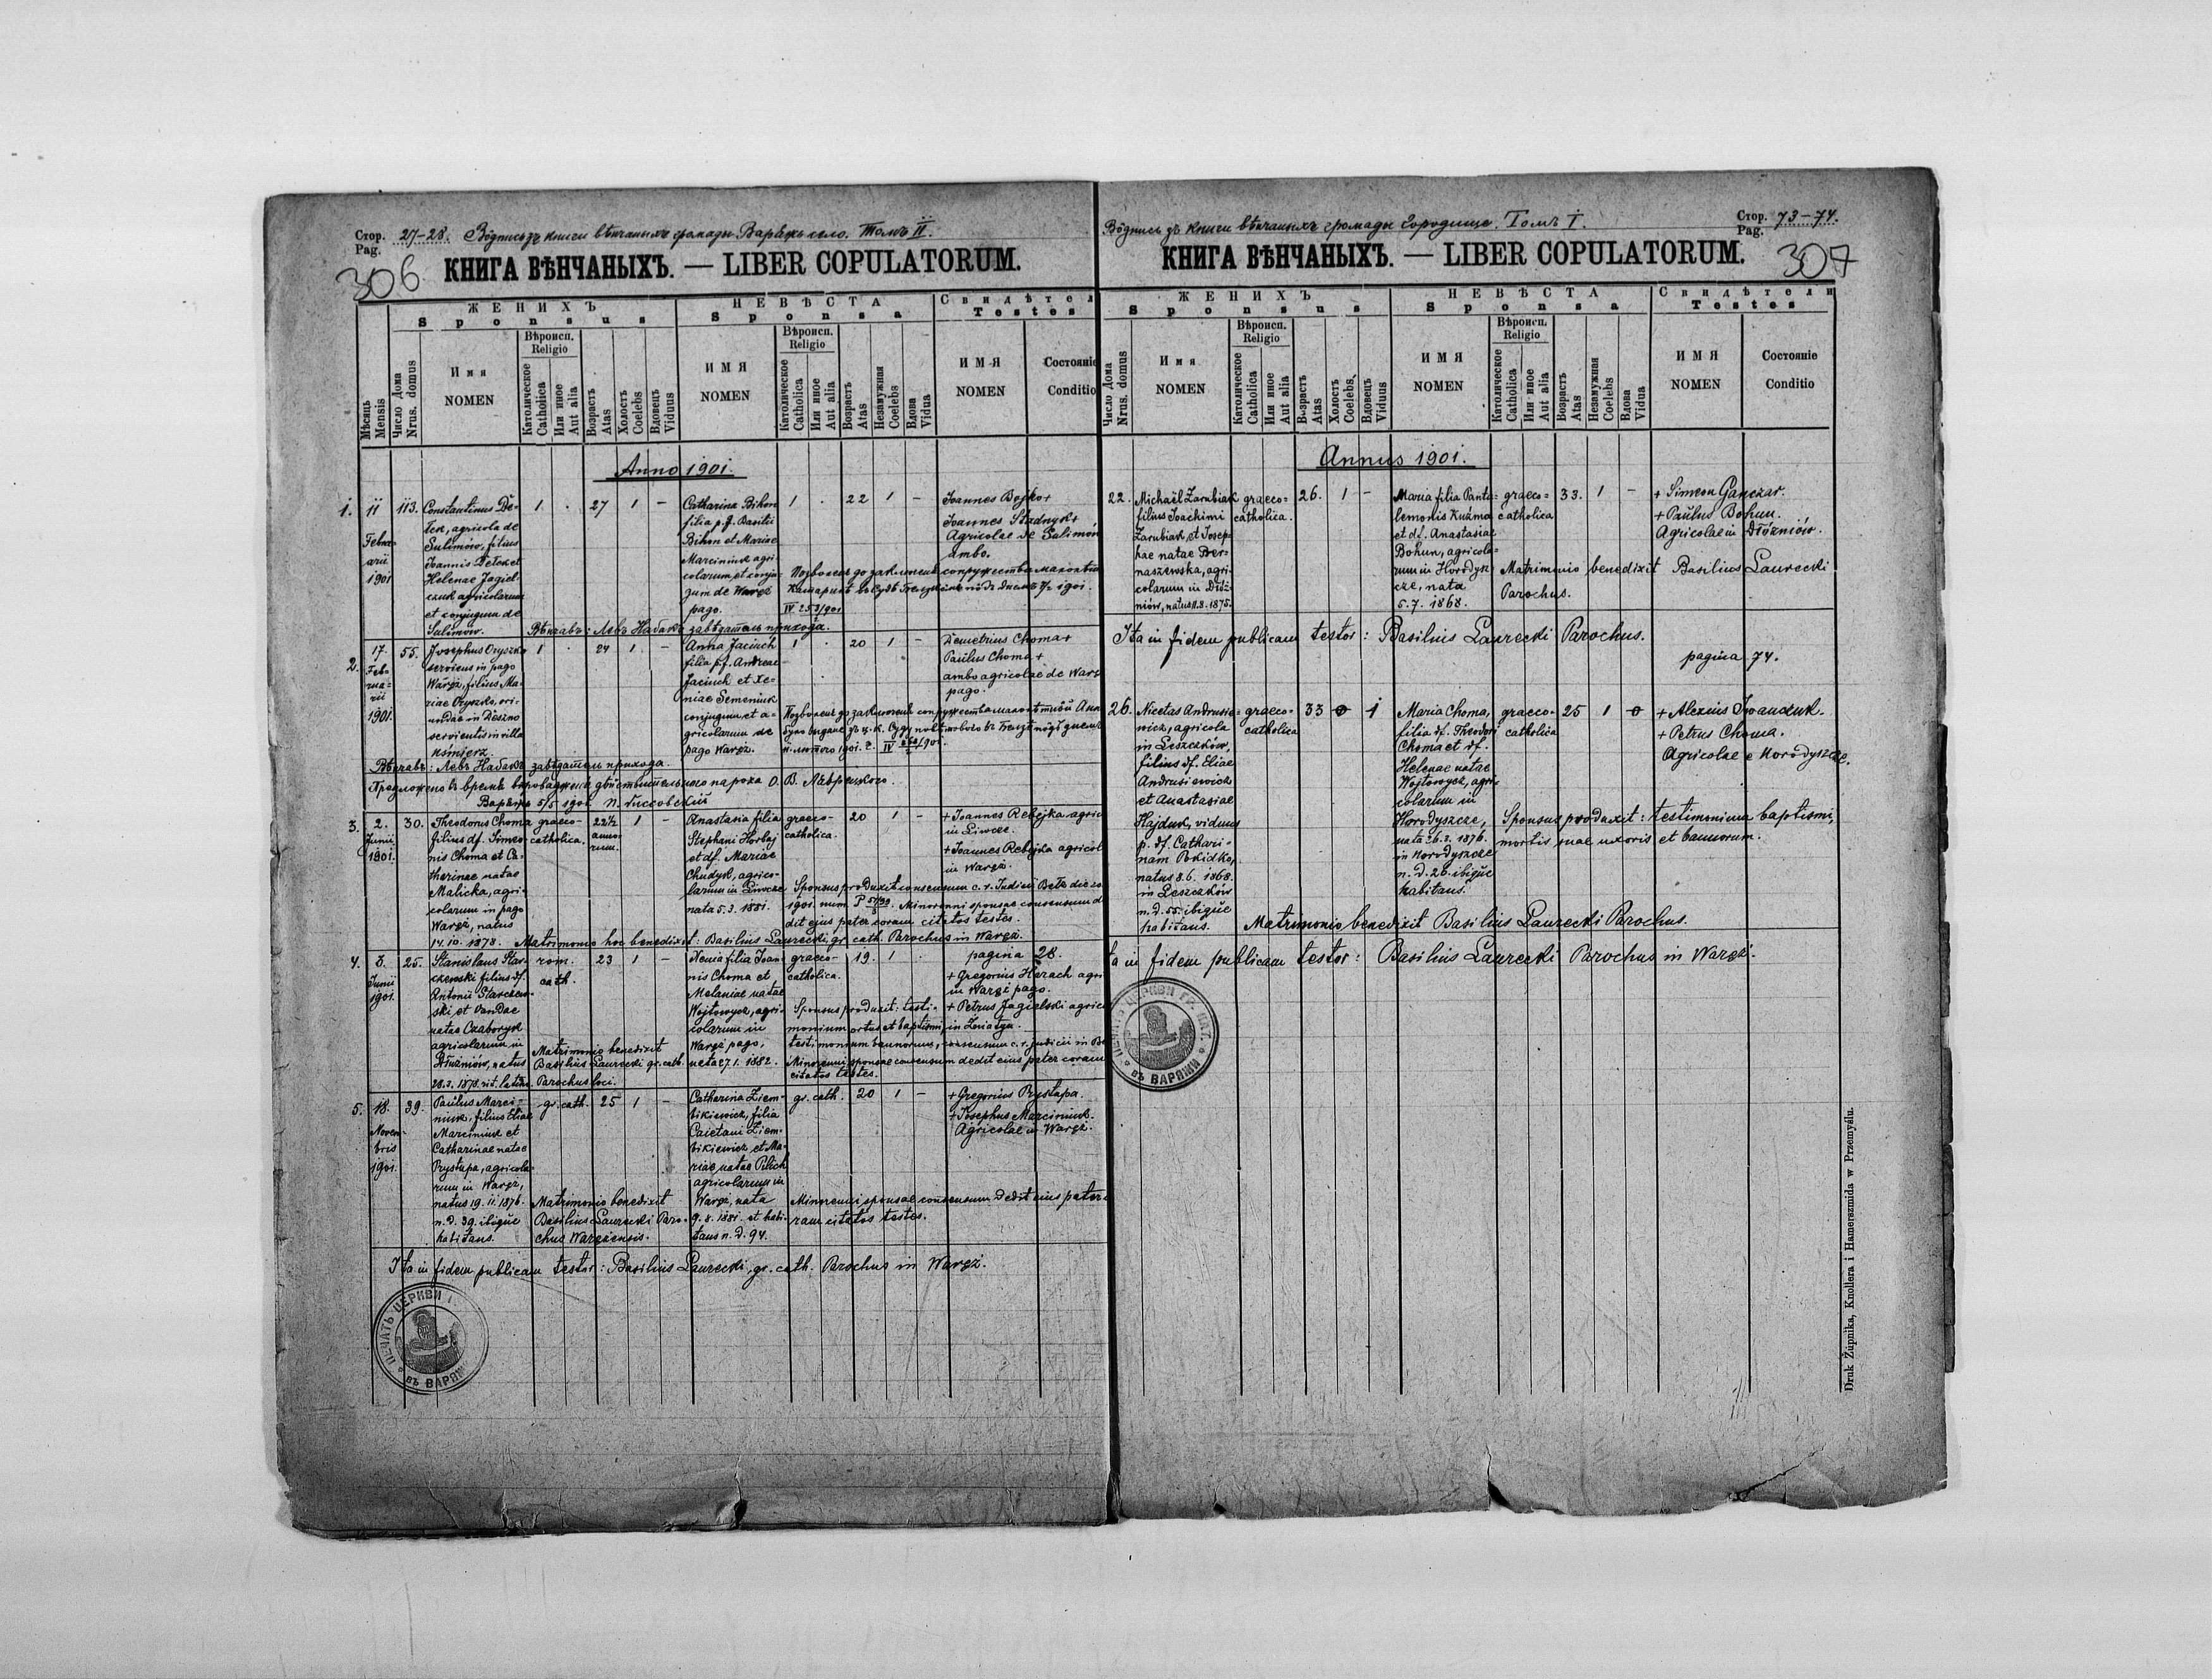 Стор. 27-28. Водпись зъ книги вѣнчаныхъ громады Варяжъ село. Томъ II.
Pag.
306
КНИГА ВѢНЧАНЫХЪ. — LIBER COPULATORUM.
Мѣсяць Mensis
Число Дома Nrus. domus
ЖЕНИХЪ
Sponsus
Имя
NOMEN
Вѣроисп.
Religio
Католическое Catholica
Или иное Aut alia
Возрастъ Atas
Холостъ Coelebs
Вдовецъ Viduus
НЕВѢСТА
Sponsa
ИМЯ
NOMEN
Вѣроисп.
Religio
Католическое Catholica
Или иное Aut alia
Возрастъ Atas
Незамужная Coelebs
Вдова Vidua
Свидѣтел
Testes
ИМЯ
NOMEN
Состояніе
Conditio
Anno 1901.
1.
11
Februarii
1901
113.
Constantinus De-
tek, agricola de
Sulimów, filius
Joannis Detek et
Helenae Jagiel-
czuk agricolarum
et conjugum de
Sulimów.
1 . 27 1 –
Catharina Bihon
filia p. f. Basilii
Bihon et Mariae
Marciniuk agri-
colarum et conju-
gum de Waręż
pago.
1 . 22 1 –
Joannes Bojko +
Joannes Stadnyk +
Agricolae de Sulimón
ambo.
Вѣнчавъ: Левъ Набакъ завѣдатель прихода.
2.
17.
Feb-
rua-
rii
1901.
55.
Josephus Oryszko
serviens in pago
Waręż, filius Ma-
riae Oryszko, ori-
undae in Leszno
servientis in villa
Kśmierz.
1 . 24 1. –
Anna Jaciuch
filia p. f. Andreae
Jaciuch et Xe-
niae Semeniuk
conjugum et a-
gricolarum de
pago Waręż.
1 . 20 1 –
Demetrius Choma +
Paulus Choma +
ambo agricolae de Waręż
pago.
Вѣнчавъ: Левъ Набакъ завѣдатель прихода.
3.
2.
Junii
1901.
30.
Theodorus Choma
filius df. Simeo-
nis Choma et Ca-
therinae natae
Malicka, agri-
colarum in pago
Waręż, natus
14. 10. 1878.
graeco-
catholica.
22½
anno-
rum.
1 –
Anastasia filia
Stephani Horbaj
et df. Mariae
Chudyk, agrico-
larum in Liwcze
nata 5. 3. 1881.
graeco-
catholica.
20 1 –
+ Joannes Rebejka agric
in Liwcze.
+ Joannes Rebejka agricol
in Waręż.
Sponsus produxit consensum c. r. Judicii Bełz
dit ejus pater coram citatos testes.
Matrimonio hoc benedixit: Basilius Laurecki gr. cath. Parochus in Waręż.
4.
3.
Junii
1901.
25.
Stanislaus Star-
czewski filius df.
Antonii Starczew-
ski et Vandae
natae Czaboryk
agricolarum in
Dłużniów, natus
28. 3. 1878. rit. latin.
rom.
cath.
23 1 –
Xenia filia Joan-
nis Choma et
Melaniae natae
Wojtowycz, agri-
colarum in
Waręż pago,
nata 27. 1. 1882.
graeco-
catholica.
19. 1 .
pagina 28.
+ Gregorius Harach agri
in Waręż pago.
+ Petrus Jagielski agrico
in Zniatyn.
Sponsus produxit: testi-
monium ortus et baptismi,
testimonium bannorum, consensum c. r. judicii in Be
Minorenni sponsae consensum dedit eius pater coram
citatos testes.
Matrimonio benedixit
Basilius Laurecki gr. cath.
Parochus loci.
5.
18.
Novem-
bris
1901.
39.
Paulus Marci-
niuk, filius Eliae
Marciniuk et
Catharinae natae
Prystupa, agricola-
rum in Waręż,
natus 19. 11. 1876.
n. d. 39. ibique
habitans.
gr. cath. 25 1 –
Catharina Ziem-
bikiewicz, filia
Caietani Ziem-
bikiewicz et Ma-
riae natae Pilich
agricolarum in
Waręż, nata
9. 8. 1881. et habi-
tans n. d. 94.
gr. cath. 20 1 –
+ Gregorius Prystupa.
+ Josephus Marciniuk.
Agricolae in Waręż.
Minorenni sponsae consensum dedit eius pater
ram citatos testes.
Matrimonio benedixit
Basilius Laurecki Paro-
chus Warężensis.
Ita in fidem publicam testor: Basilius Laurecki, gr. cath. Parochus in Waręż.
ПЕЧАТЬ ЦЕРКВИ Г
ВЪ ВАРЯЖИ
Водпись зъ книги вѣнчаныхъ громады Городище. Томъ I.
Стор. 73-74.
Pag.
307
КНИГА ВѢНЧАНЫХЪ. — LIBER COPULATORUM.
Число Дома Nrus. domus
ЖЕНИХЪ
Sponsus
Имя
NOMEN
Вѣроисп.
Religio
Католическое Catholica
Или иное Aut alia
Возрастъ Atas
Холостъ Coelebs
Вдовецъ Viduus
НЕВѢСТА
Sponsa
ИМЯ
NOMEN
Вѣроисп.
Religio
Католическое Catholica
Или иное Aut alia
Возрастъ Atas
Незамужная Coelebs
Вдова Vidua
Свидѣтели
Testes
ИМЯ
NOMEN
Состояніе
Conditio
Annus 1901.
22.
Michaël Zarubiak
filius Joachimi
Zarubiak, et Josep-
hae natae Ber-
naszewska, agri-
colarum in Dłuż-
niów, natus 11. 8. 1875.
graeco-
catholica.
26. 1 –
Maria filia Panta-
lemonis Kuźma
et df. Anastasiae
Bohun, agricola-
rum in Horodysz-
cze, nata
5. 7. 1868.
graeco-
catholica
33. 1 –
+ Simeon Ganczar.
+ Paulus Bohun.
Agricolae in Dłużniów.
Matrimonio benedixit Basilius Laurecki
Parochus.
Ita in fidem publicam testor: Basilius Laurecki Parochus.
pagina 74.
26.
Nicetas Andrusie-
wicz, agricola
in Leszczków,
filius df. Eliae
Andrusiewicz
et Anastasiae
Hajduk, viduus
p. df. Cathari-
nam Pokidko,
natus 8. 6. 1868.
in Leszczków
n. d. 55. ibique
habitans.
graeco-
catholica
33 0 1
Maria Choma,
filia df. Theodori
Choma et df.
Helenae natae
Wojtowycz, agri-
colarum in
Horodyszcze,
nata 26. 3. 1876.
in Horodyszcze
n. d. 26. ibique
habitans.
graeco-
catholica
25 1 0
+ Alexius Iwanczuk.
+ Petrus Choma.
Agricolae e Horodyszcze.
Sponsus produxit: testimonium baptismi,
mortis suae uxoris et bannorum.
Matrimonio benedixit Basilius Laurecki Parochus.
ta in fidem publicam testor: Basilius Laurecki Parochus in Waręż.
ПЕЧАТЬ ЦЕРКВИ ГР. КАТ.
ВЪ ВАРЯЖИ
Druk Żupnika, Knollera i Hamerszmida w Przemyślu.